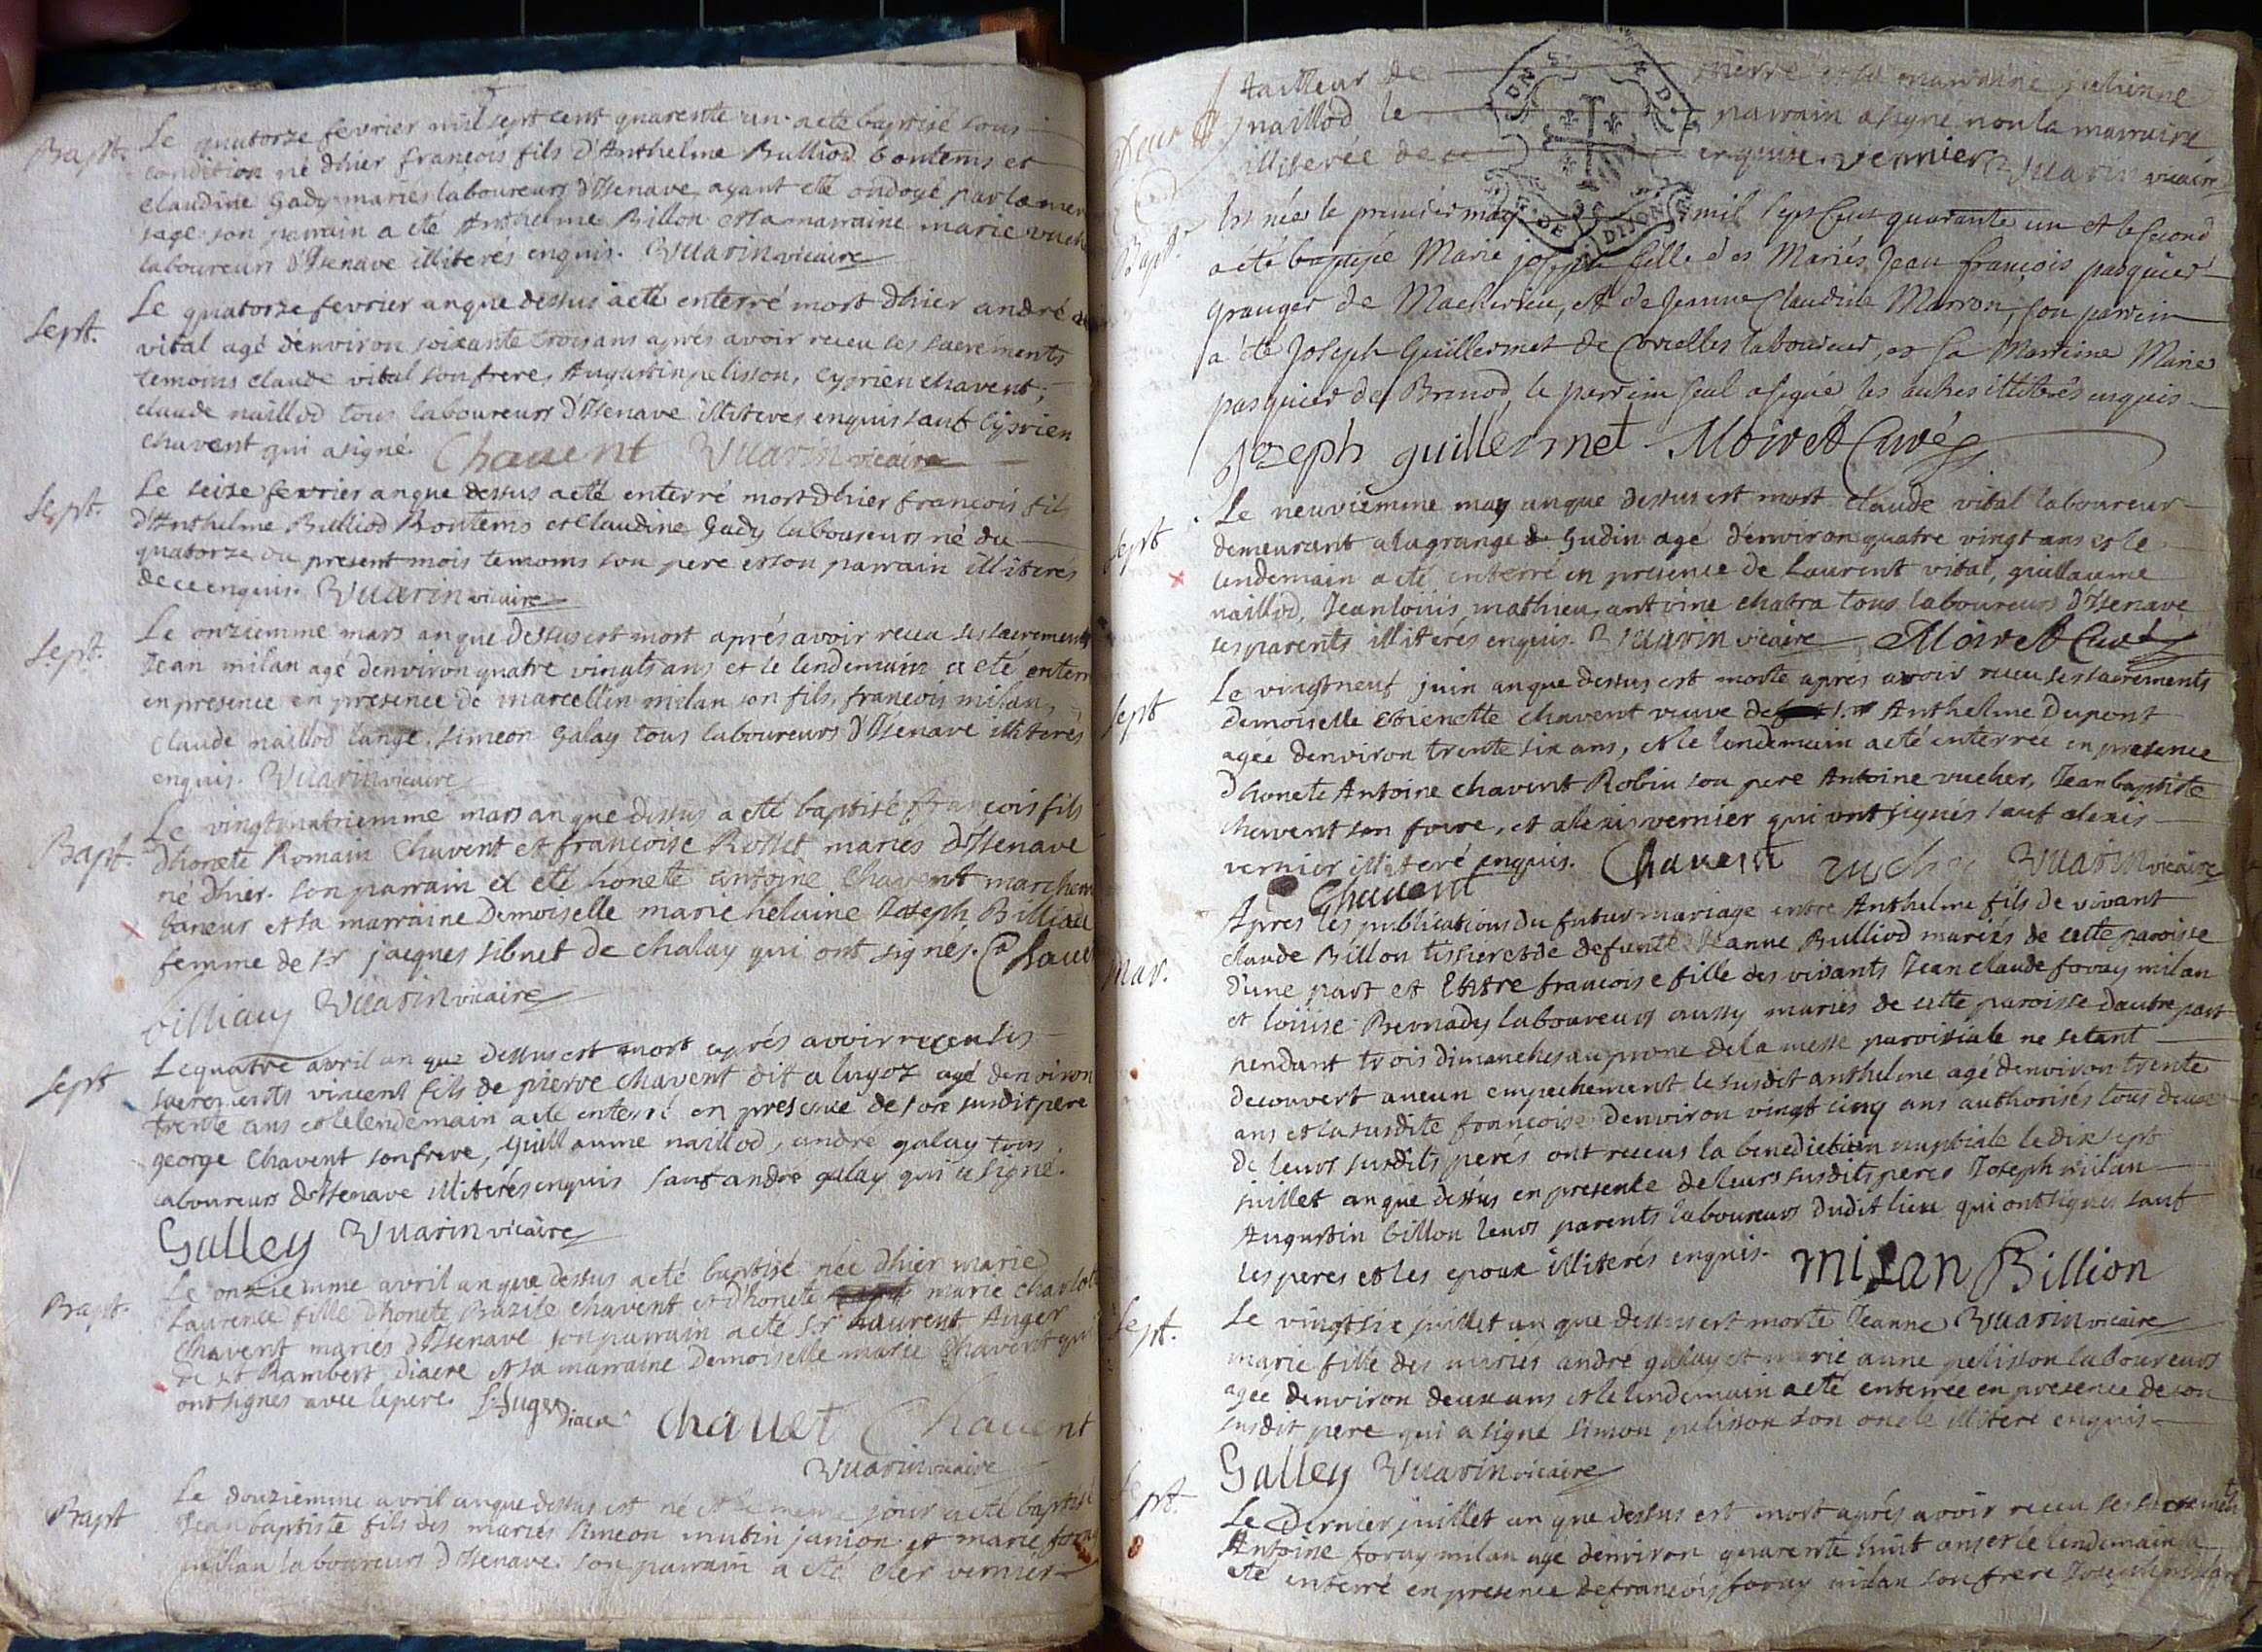 Bapt. Le quatorze fevrier mil sept cent quarente un a eté baptisé sous
condition né dhier francois fils d'Anthelme Bulliod bontems et
claudine Gady mariés laboureurs d'Izenave ayant eté ondoyé par la
sage son parrain a eté Anthelme Billon et sa marraine marie
laboureurs d'Izenave illiteres enquis. Vuarin vicaire
Sept. Le quatorze fevrier an que dessus a eté enterré mort dhier andré
vital agé d'environ soixante trois ans aprés avoir receu ses sacrements
temoins claude vital son frere, Augustin pelisson, Cyprien chavent,
claude naillod tous laboureurs d'Izenave illiteres enquis sauf Cyprien
chavent qui a signé. Chauent Vuarin vicaire
Sept. Le seize fevrier an que dessus a eté enterré mort dhier francois fils
d'Anthelme Bulliod Bontems et Claudine Gady laboureurs né du
quatorze du present mois temoins son pere et son parrain illiterés
de ce enquis. Vuarin vicaire
Sept. Le onziemme mars an que dessus est mort aprés avoir receu ses sacrements
Jean milan agé denviron quatre vingts ans et le lendemain a eté enterré
en presence en presence de marcellin milan son fils, francois milan,
Claude naillod lange, simeon Galay tous laboureurs d'Izenave illiterés
enquis. Vuarin vicaire
Bapt. Le vingtquatriemme mars an que dessus a eté baptisé francois fils
dhonete Romain Chavent et francoise Rosset mariés d'Izenave
né dhier. son parrain a eté honete antoine Chavent
taneur et sa marraine Demoiselle marie helaine Joseph
femme de Sr jacques sibuet de chalay qui ont signés.
Vuarin vicaire
Sept Le quatre avril an que dessus est mort aprés avoir receu ses
sacrements vincent fils de pierre chavent dit agé denviron
trente ans et le lendemain a eté enterré en presence de son susdit pere
george Chavent son frere, Guillaume naillod, andré galay tous
laboureurs d'Izenave illiterés enquis sauf andré galay qui a signé.
Galley Vuarin vicaire
Bapt. Le onziemme avril an que dessus a eté baptisé née dhier marie
Laurence fille dhonete Bazile chavent et dhonete marie
chavent mariés d'Izenave son parrain a eté Sr Laurent Auger
de St Rambert, diacre et sa marraine Demoiselle marie Chavent qui
ont signés avec le pere. L. Auger Diacre Chauet Chauent
Vuarin vicaire
Bapt Le douziemme avril an que dessus est né et le meme jour a eté baptisé
Jean baptiste fils des mariés Simeon mutin janion et marie
milan laboureurs d'Izenave. son parrain a eté vernier
tailleur de pierre et sa marraine
naillod le parrain a signé non la marraine
illiterée de ce enquise. vernier Vuarin vicaire
Bapt. Est née le premier may mil sept Cent quarante un et le second
a eté baptisée Marie joseph fille des Mariés Jean francois pasquier
granger de et de Jeanne Claudine Marron, son parrein
a eté Joseph Guillermet de Corcelles laboureur, et sa Marreine Marie
pasquier de Brenod, le parrein seul a signé les autres illiterés enquis
Jozeph guillermet Moiret Curé
Sept Le neuviemme may an que dessus est mort claude vital laboureur
demeurant a la grange de Gudin agé d'environ quatre vingt ans et le
lendemain a eté enterré en presence de Laurent vital, guillaume
naillod, Jean loüis mathieu, antoine chatra tous laboureurs d'Izenave
ses parents illiterés enquis. Vuarin vicaire Moiret Curé
Sept Le vingtneuf juin an que dessus est morte aprés avoir receu ses sacrements
demoiselle etienette chavent veuve de Sr Anthelme Dupont
agée denviron trente six ans, et le lendemain a eté enterrée en presence
dhonete Antoine chavent Robin son pere Antoine vucher, Jean baptiste
chavent son frere, et alexis vernier qui ont signés sauf alexis
vernier illiteré enquis. Chauent vucher Vuarin vicaire
Chauent
Mar. Apres les publications du futur mariage entre Anthelme fils de vivant
claude Billon tissier et de defunte Jeanne Bulliod mariés de cette paroisse
d'une part et Entre francoise fille des vivants Jean claude foray milan
et loüise Bernady laboureurs aussy mariés de cette paroisse dautre part
pendant trois dimanches au prone de la messe paroissiale ne setant
decouvert aucun empechement le susdit anthelme agé denviron trente
ans et la susdite francoise denviron vingt cinq ans authorisés tous deux
de leurs susdits peres ont receus la benediction nuptiale le dix sept
juillet an que dessus en presence de leurs susdits peres Joseph milan
Augustin billon leurs parents laboureurs dudit lieu qui ont signés sauf
les peres et les epoux illiterés enquis. milan Billion
Sept. Le vingtsix juillet an que dessus est morte Jeanne Vuarin vicaire
marie fille des mariés andré galay et marie anne pelisson laboureurs
agée denviron deux ans et le lendemain a eté enterrée en presence de son
susdit pere qui a signé simon pelisson son oncle illiteré enquis
Galley Vuarin vicaire
Sept. Le dernier juillet an que dessus est mort aprés avoir receu ses sacrements
Antoine foray milan agé denviron quarente huit ans et le lendemain a
eté enterré en presence de francois foray milan son frere Joseph milan